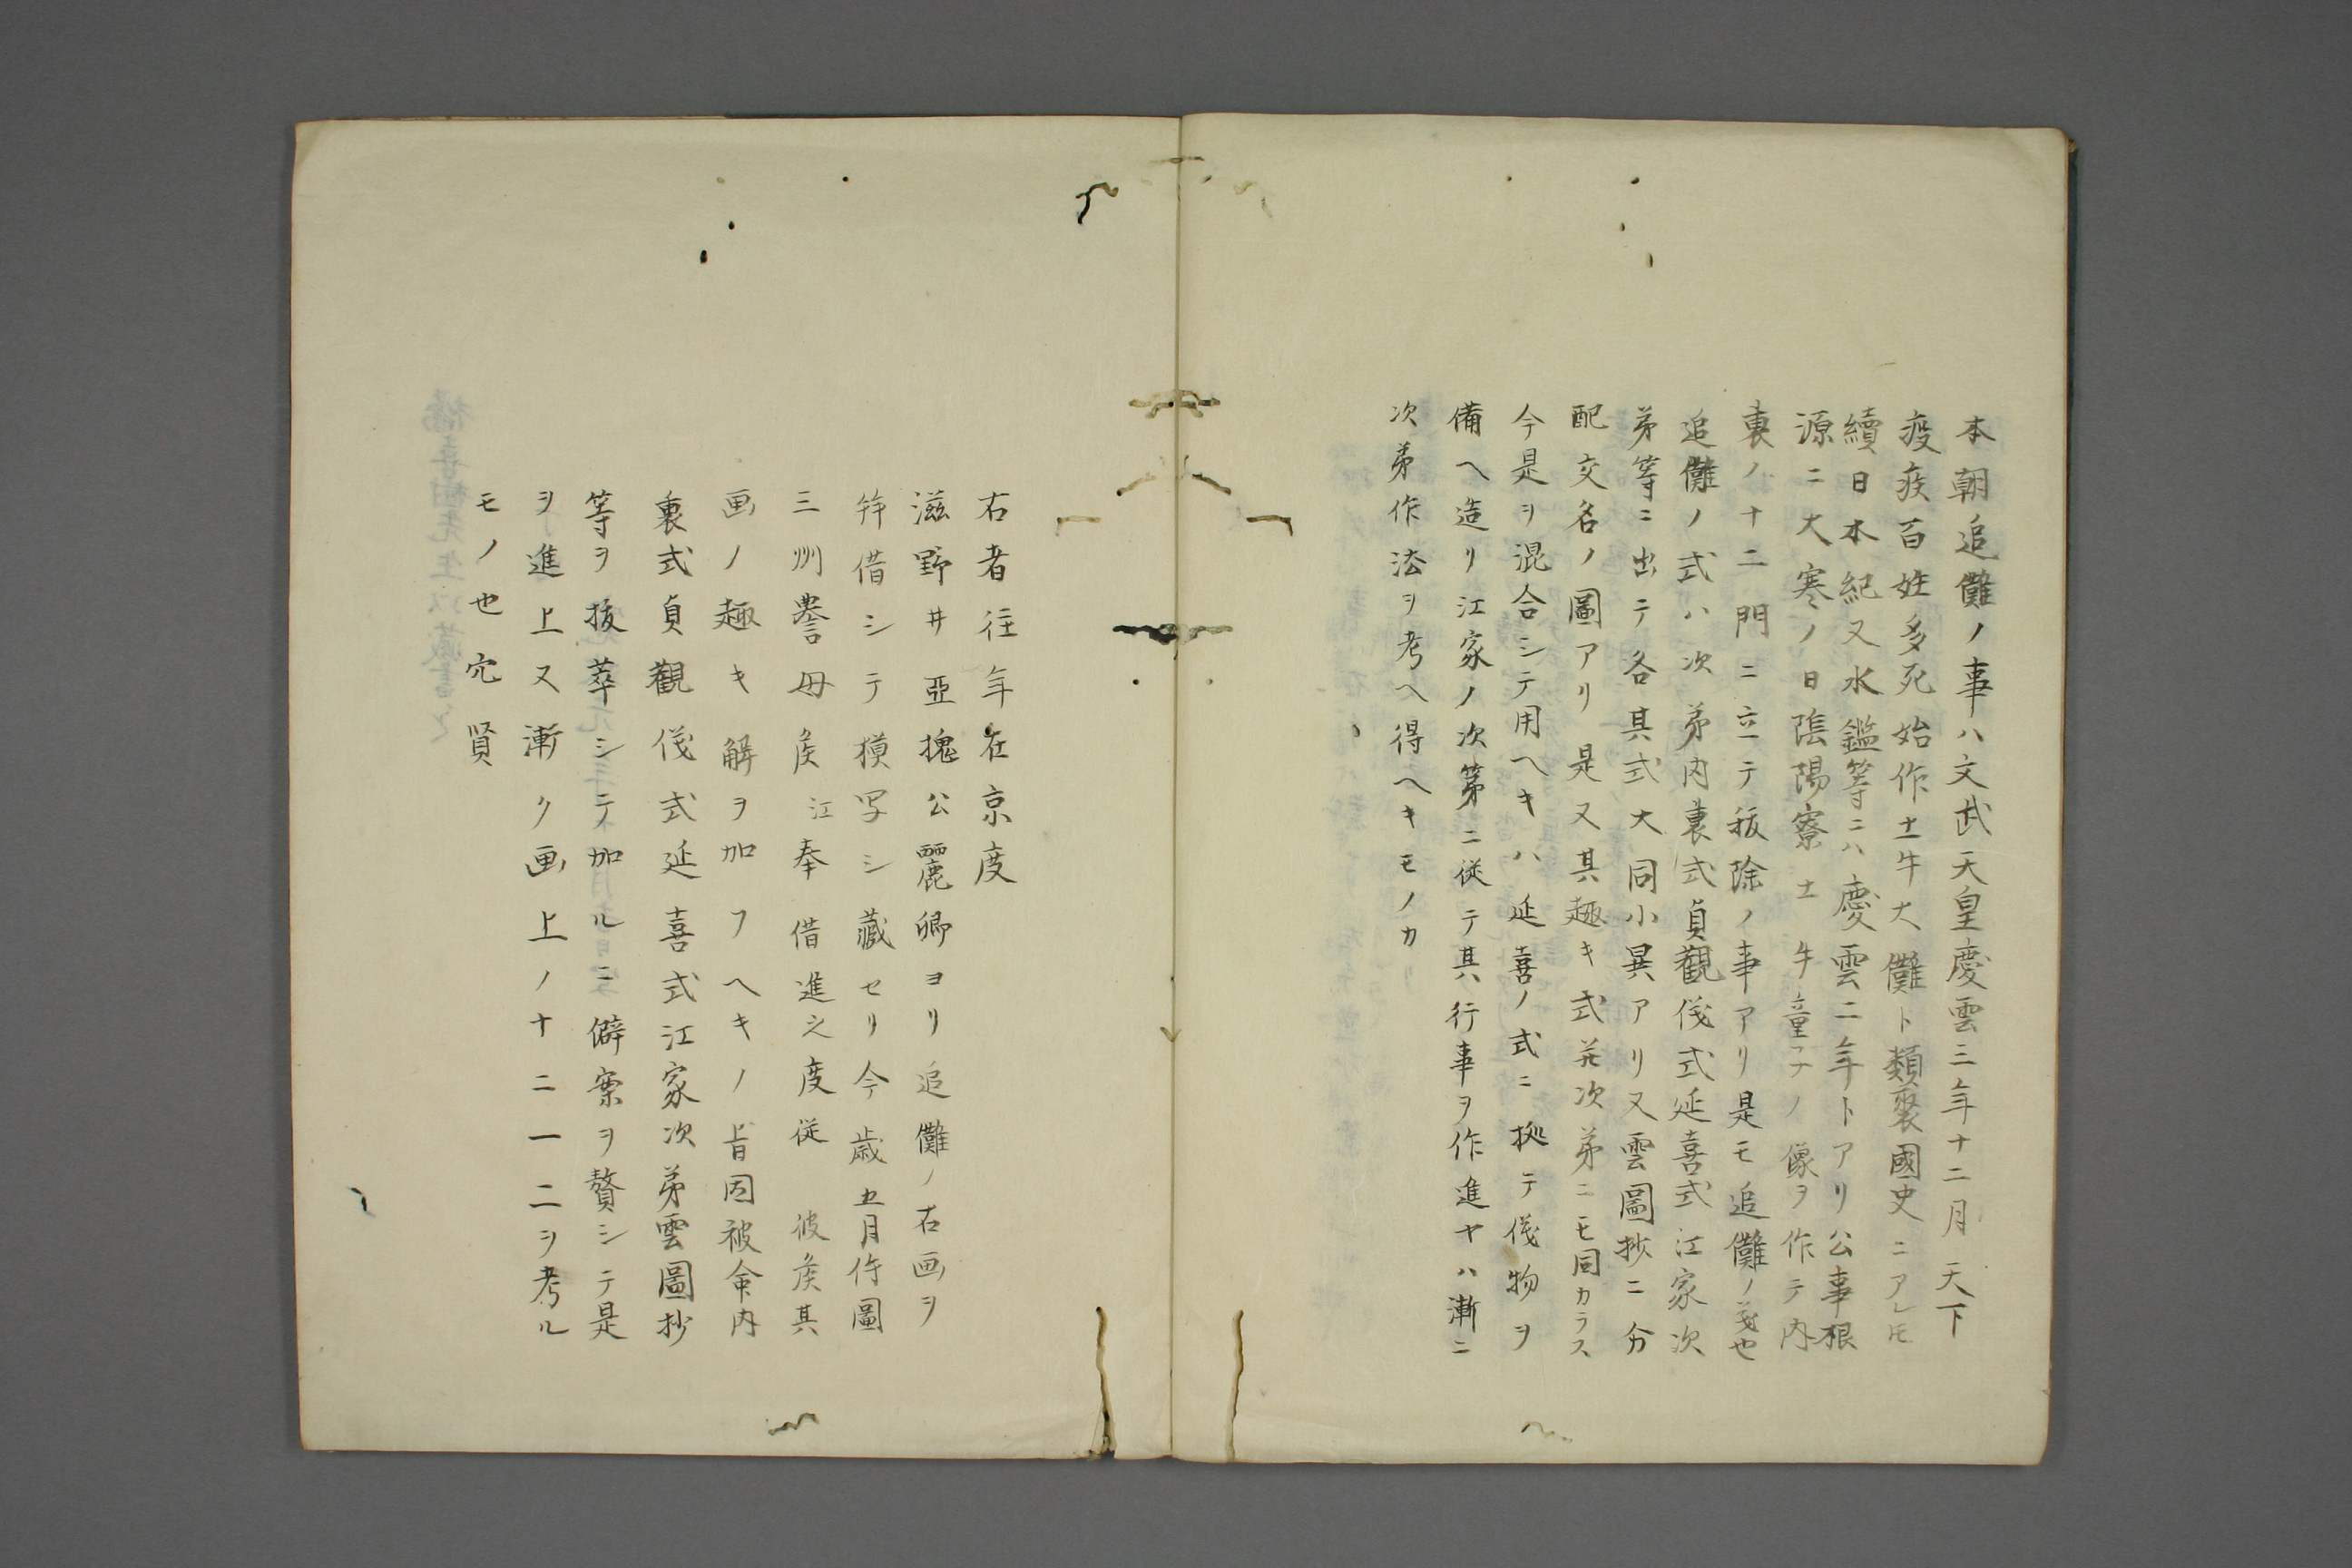 本朝追儺ノ事ハ文武天皇慶雲三年十二月天下
疫疾百姓多死始作土牛大儺ト類聚國史ニアレ𪜈
續日本紀又水鑑等ニハ慶雲二年トアリ公事根
源ニ大寒ノ日陰陽寮土牛童子ノ像ヲ作テ内
裏ノ十二門ニ立テ祓除ノ事アリ是モ追儺ノ義也
追儺ノ式ハ次第内裏式貞觀儀式延喜式江家次
第等ニ出テ各其式大同小異アリ又雲圖抄ニ分
配交名ノ圖アリ是又其趣キ式並次第ニモ同カラス
今是ヲ混合シテ用ヘキハ延喜ノ式ニ拠テ儀物ヲ
備ヘ造リ江家ノ次第ニ従テ其行事ヲ作進ヤハ漸ニ
次第作法ヲ考ヘ得ヘキモノカ
右者往年在京度
滋野井亞槐公麗卿ヨリ追儺ノ古画ヲ
幷借シテ模写シ藏セリ今歳五月侍圖
三州譽母矦江奉借進之度従彼矦其
画ノ趣キ解ヲ加フヘキノ旨因被命内
裏式貞觀儀式延喜式江家次第雲圖抄
等ヲ抜萃シテ加ルニ僻案ヲ贅シテ是
ヲ進上又漸ク画上ノ十二一二ヲ考ル
モノ也穴賢